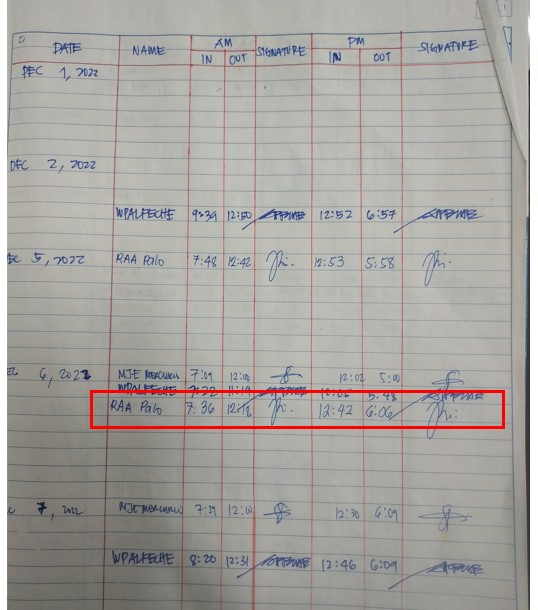 DATE NAME AM IN OUT SIGNATURE PM IN OUT SIGNATURE
DEC 1, 2022
DEC 2, 2022
WPALFECHE 9:39 12:50 12:52 6:57
5, 2022 RAA Palo 7:48 12:42 12:53 5:58
6, 2022 MJE 7:09 12:00 12:02 5:00
WPALFECHE 7:22 11:19 5:48
RAA Palo 7:36 12:18 12:42 6:06
7, 2022 MJE 7:29 12:00 12:30 6:09
WPALFECHE 8:20 12:31 12:46 6:09